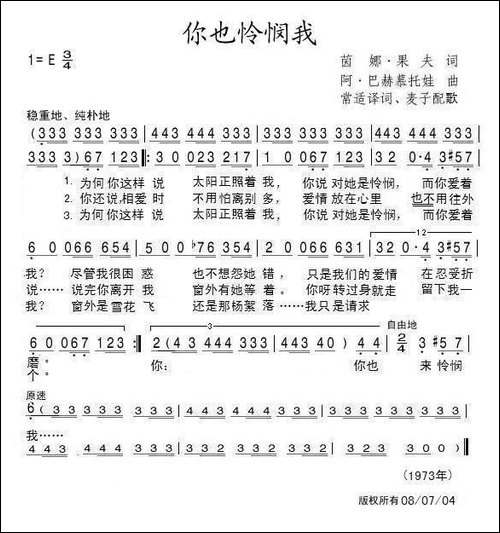 你也怜悯我
1=E 3/4
茵娜·果夫 词
阿·巴赫慕托娃 曲
常适译词、麦子配歌
稳重地、纯朴地
(333 333 333 | 443 444 333 | 333 333 333 | 443 444 333 |
333 3) 67 123 |: 3 0 023 217 | 1 0 067 123 | 32 0·4 3#57 |
1. 为何你这样 说 太阳正照着 我, 你说 对她是怜悯, 而你爱着
2. 你还说,相爱 时 不用怕离别 多, 爱情 放在心里 也不用往外
3. 为何你这样 说 太阳正照着 我, 你说 对她是怜悯, 而你爱着
12
6 0 066 654 | 5 0 05 b76 354 | 2 0 022 066 631 | 32 0·4 3#57 |
我? 尽管我很困 惑 也不想怨她 错, 只是我们的爱情 在忍受折
说…… 说完你离开 我 窗外有她等 着。 你呀转过身就走 留下我一
我? 窗外是雪花 飞 还是那杨絮 落……我只是请求
3
自由地
6 0 067 123 :| 2 (43 444 333 | 443 444 333 | 40) 44 | 2/4 3#57 |
磨。 你: 你也 来怜悯
个。
原速
6 (333 333 333 | 333 333 333 | 443 444 333 | 333 333 333 |
我……
443 443 332 | 332 332 332 | 332 323 300) ||
(1973年)
版权所有 08/07/04